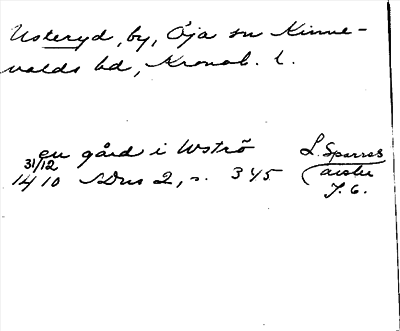 Usteryd, by, Öja sn Kinne-
valds hd, Kronob. l.
en gård i Wströ
31/12
1410 SDns 2, s. 345
L. Sparres
avskr
T. 6.